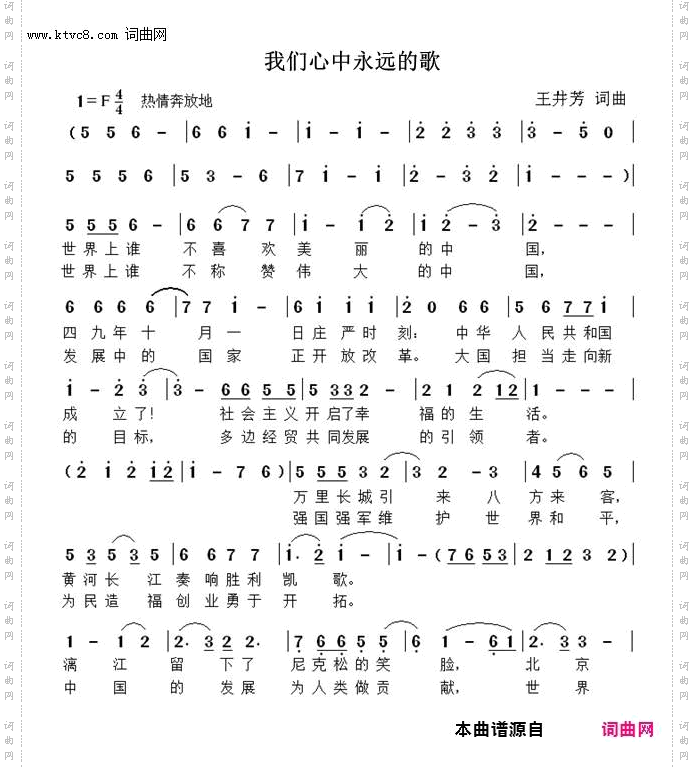 www.ktvc8.com 词曲网
我们心中永远的歌
1=F 4/4 热情奔放地 王井芳 词曲
( 5 5 6 - | 6 6 i - | i - i - | 2 2 3 3 | 3 - 5 0
5 5 5 6 | 5 3 - 6 | 7 i - i | 2 - 3 2 | i - - - )
5 5 5 6 - | 6 6 7 7 | i - i 2 | i 2 - 3 | 2 - - -
世界上谁 不喜欢美丽的中国,
世界上谁 不称赞伟大的中国,
6 6 6 6 | 7 7 i - | 6 i i i | 2 0 6 6 | 5 6 7 7 i
四九年十月一 日庄严时刻: 中华人民共和国
发展中的国家 正开放改革。 大国担当走向新
i - 2 3 | 3 - 6 6 5 5 | 5 3 3 2 - | 2 1 2 1 2 | 1 - - -
成立了! 社会主义开启了幸福的生活。
的目标, 多边经贸共同发展的引领者。
( 2 i 2 i 2 | i - 7 6 ) | 5 5 5 3 2 | 3 2 - 3 | 4 5 6 5
万里长城引来八方来客,
强国强军维护世界和平,
5 3 5 3 | 6 6 7 7 | i. 2 i - | i - ( 7 6 5 3 | 2 1 2 3 )
黄河长江奏响胜利凯歌。
为民造福创业勇于开拓。
1 - 1 2 | 2. 3 2 2. | 7 6 6 5 5 | 6 1 - 6 1 | 2. 3 - -
漓江留下了尼克松的笑脸, 北京
中国的发展为人类做贡献, 世界
本曲谱源自 词曲网
词曲网
词曲网
词曲网
词曲网
词曲网
词曲网
词曲网
词曲网
词曲网
词曲网
词曲网
词曲网
词曲网